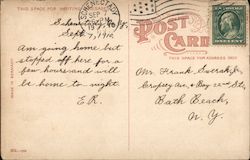 THIS SPACE FOR WRITING
SCHENECTADY
SEP 7
1910
N.Y.
POST CARD
THIS SPACE FOR ADDRESS ONLY
Sept. 7, 1910.
Am going home but
stopped off here for a
few hours and will
be home to night
E.R.
Mr. Frank
Cropsey Ave. & Bay 22nd St.,
Bath Beach,
N.Y.
MADE IN GERMANY